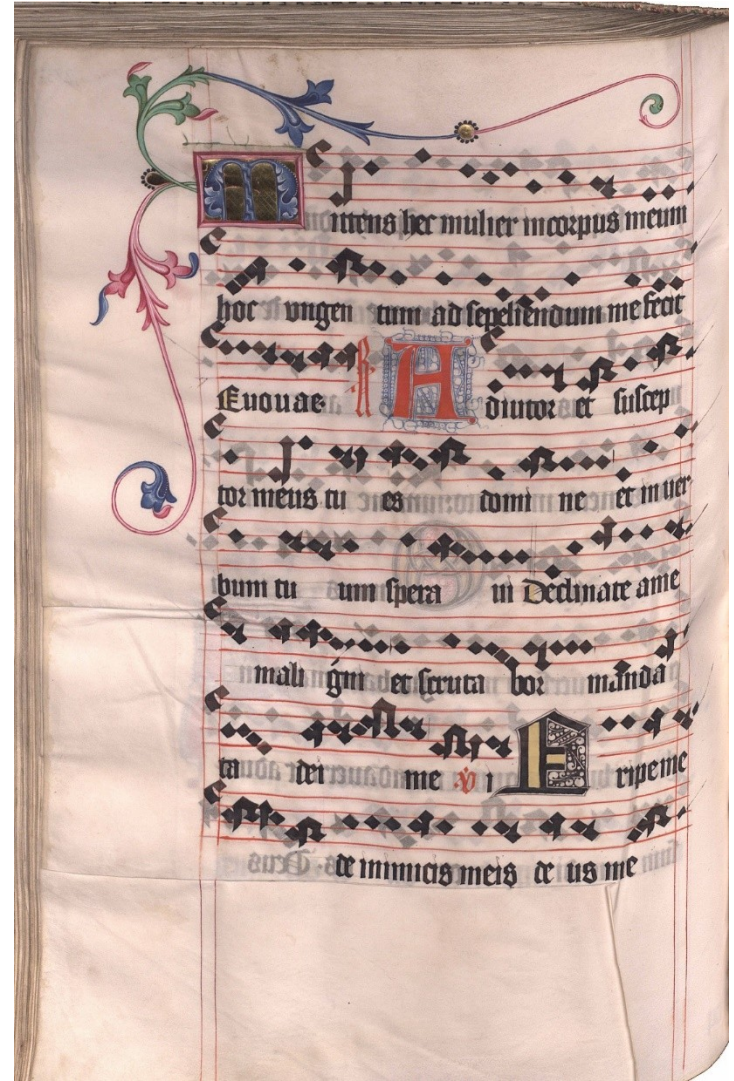 Mittens hec mulier in corpus meum
hoc ungen tum ad sepeliendum me fecit
Euouae. R Adiutor et suscep
tor meus tu es domi ne et in ver
bum tu um spera ui Declinate a me
mali gni et scruta bor manda
ta dei me i ℣ Eripe me
de inimicis meis de us me